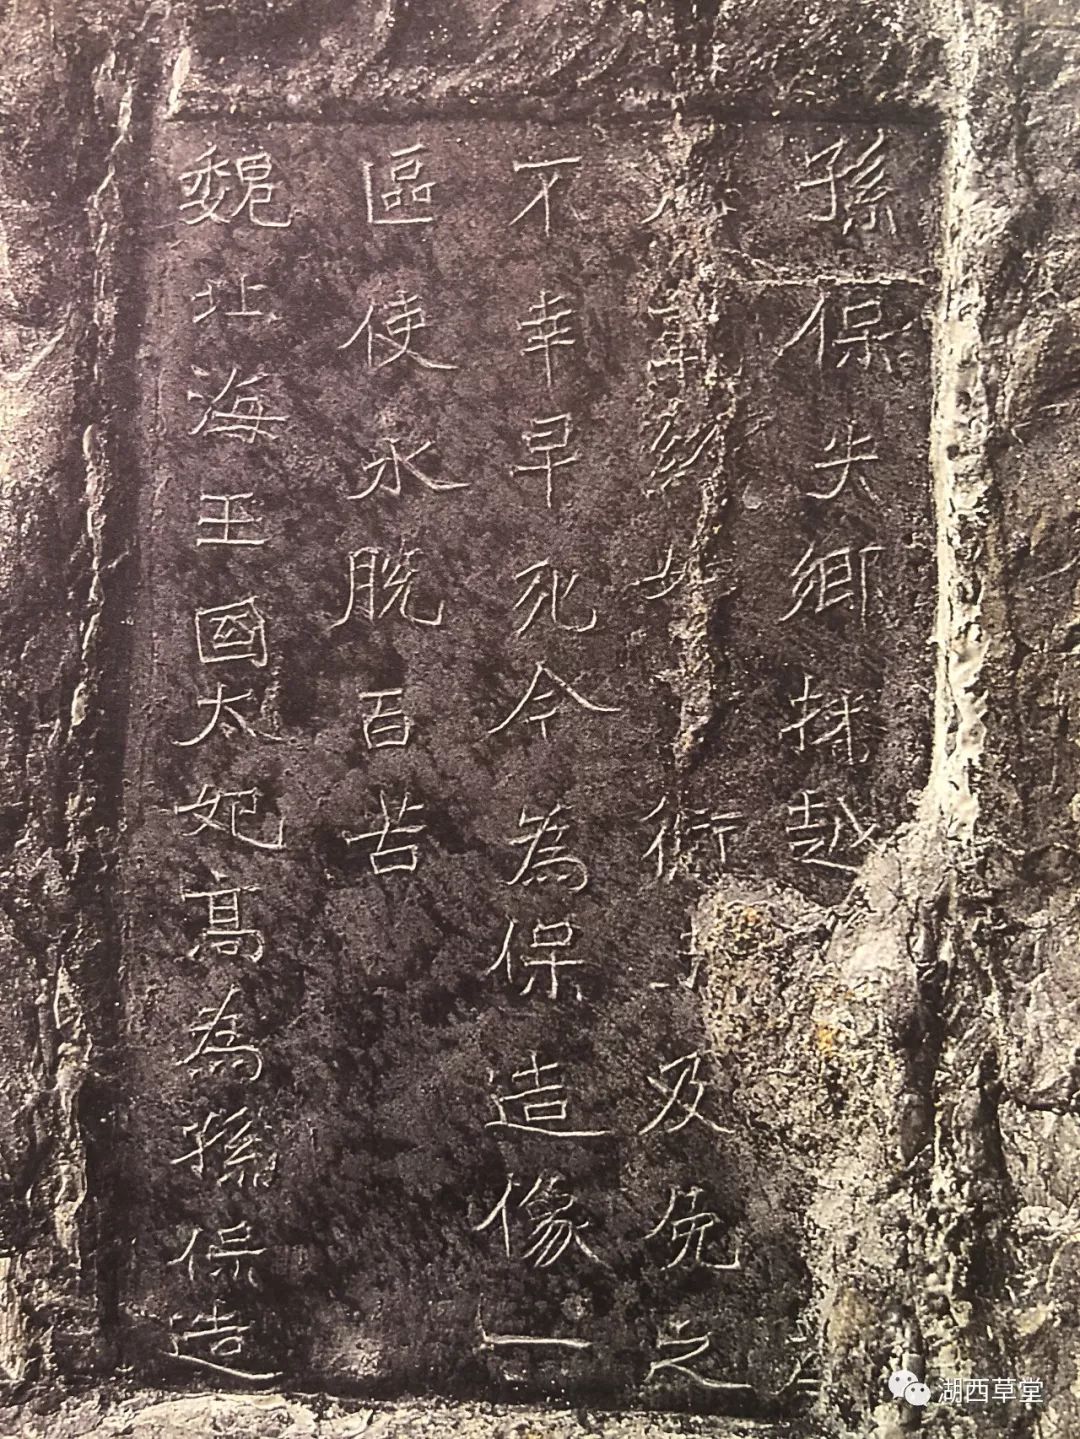 孫保失鄉越
及免之
不幸早死今為保造像一
區使永脫百苦
魏北海王國太妃高為孫保造
湖西草堂